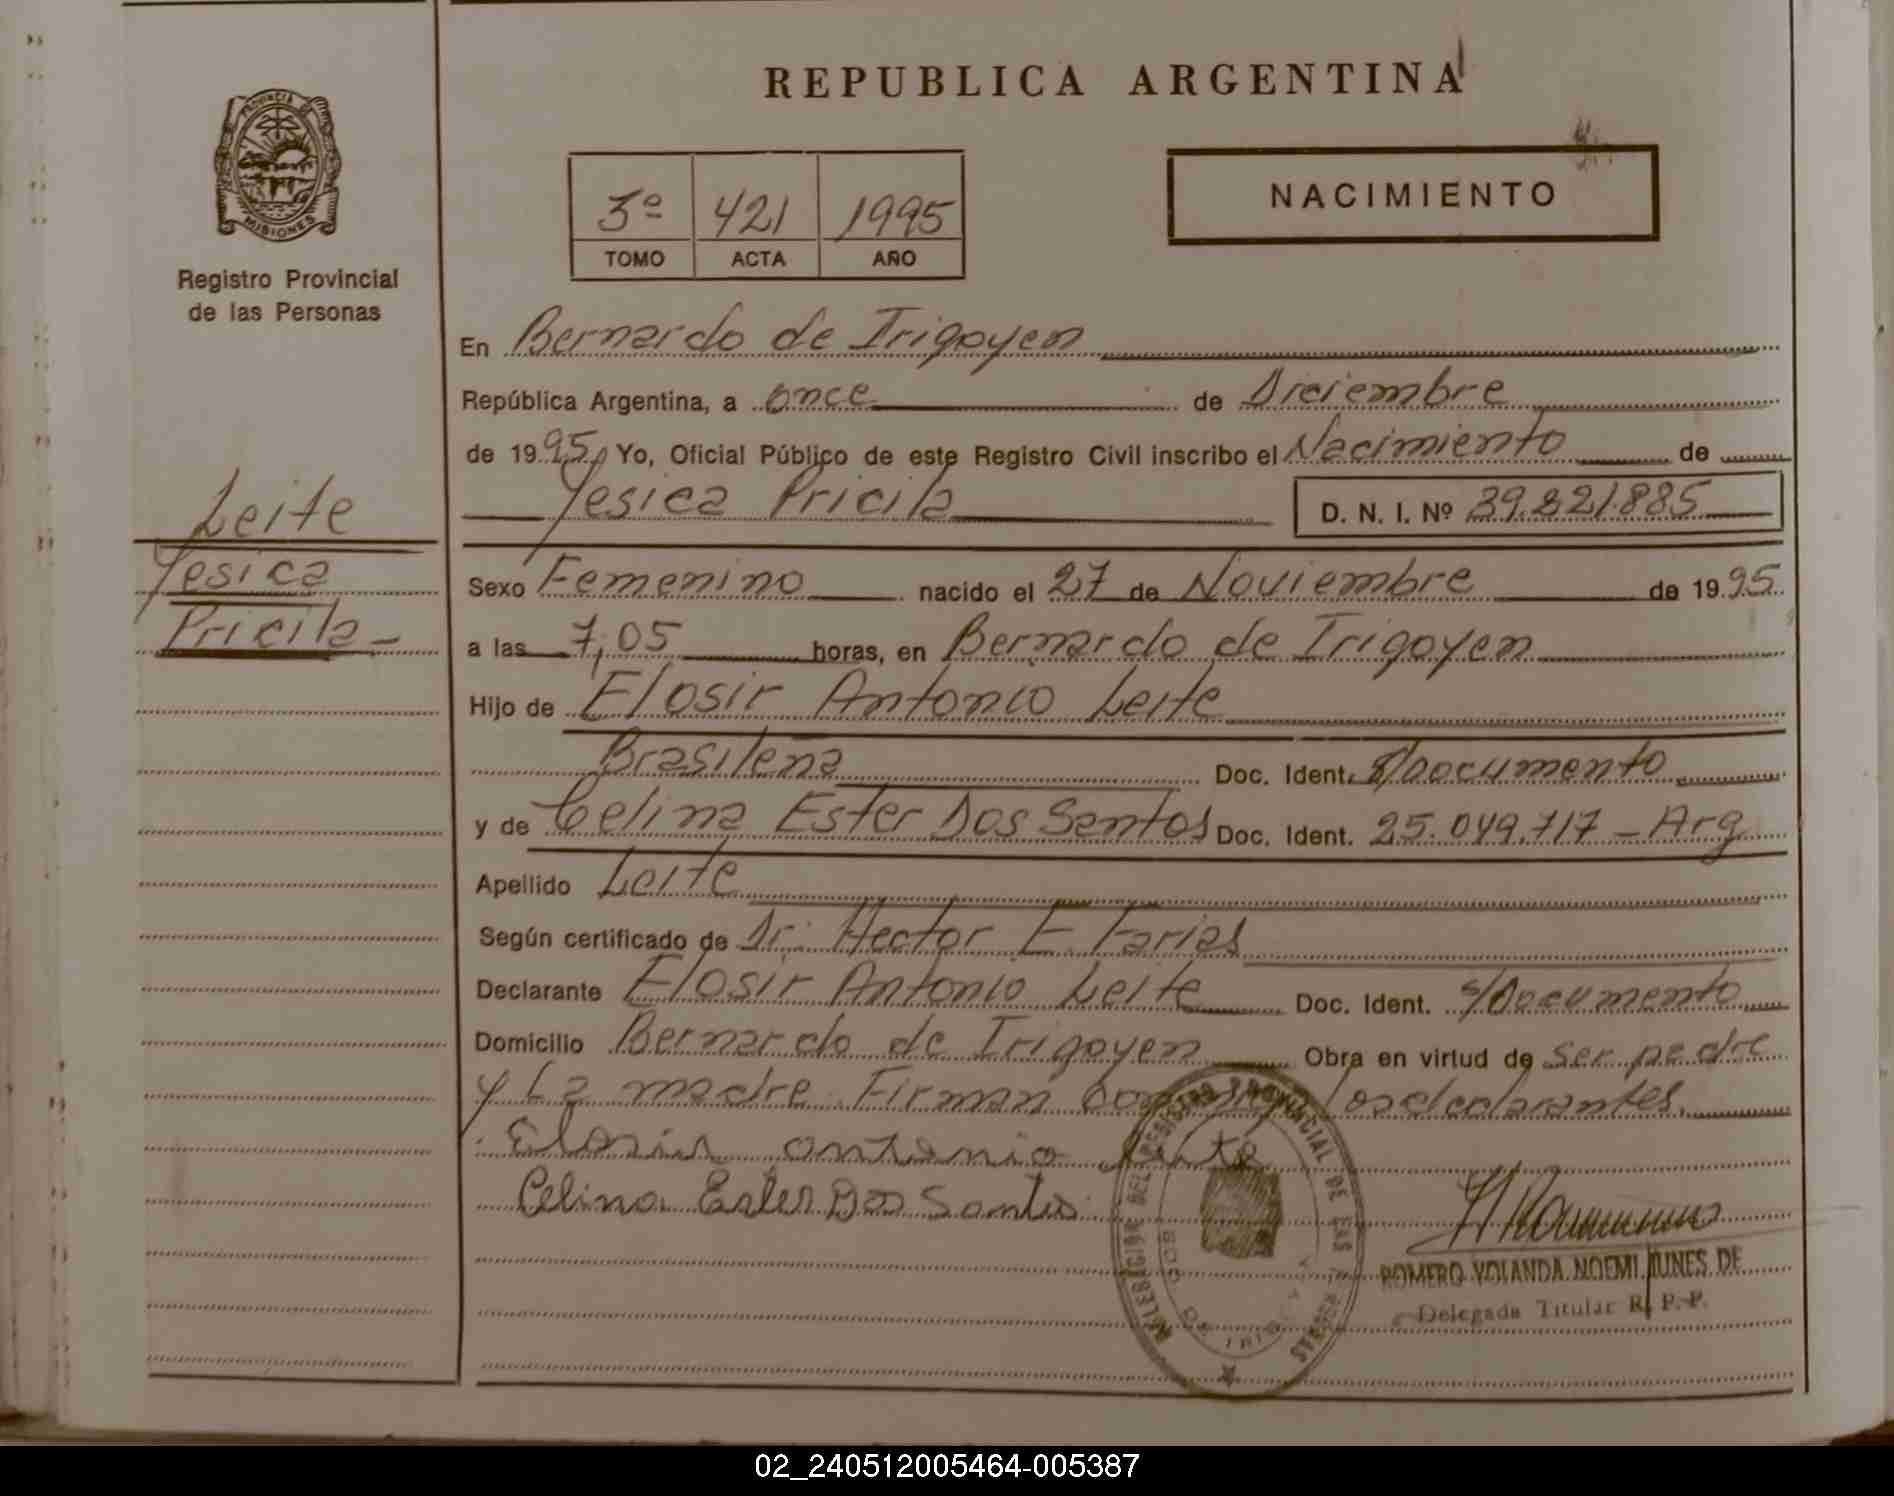 REPUBLICA ARGENTINA
PROVINCIA DE
MISIONES
Registro Provincial
de las Personas
3º 421 1995
TOMO ACTA AÑO
NACIMIENTO
En Bernardo de Irigoyen
República Argentina, a once de Diciembre
de 1995 Yo, Oficial Público de este Registro Civil inscribo el Nacimiento de
Yesica Pricila D. N. I. Nº 39.221.885
Leite
Yesica
Pricila-
Sexo Femenino nacido el 27 de Noviembre de 1995
a las 7,05 horas, en Bernardo de Irigoyen
Hijo de Elosir Antonio Leite
Brasileña Doc. Ident. s/Documento
y de Celina Ester Dos Santos Doc. Ident. 25.049.717 - Arg
Apellido Leite
Según certificado de Dr. Hector E. Farias
Declarante Elosir Antonio Leite Doc. Ident. s/Documento
Domicilio Bernardo de Irigoyen Obra en virtud de ser padre
y La madre Firman Los declarantes
Elosir antonio Leite
Celina Ester Dos Santos
DEL REGISTRO PROVINCIAL DE LAS
ROMERO YOLANDA NOEMI NUNES DE
Delegada Titular R. P. P.
02_240512005464-005387